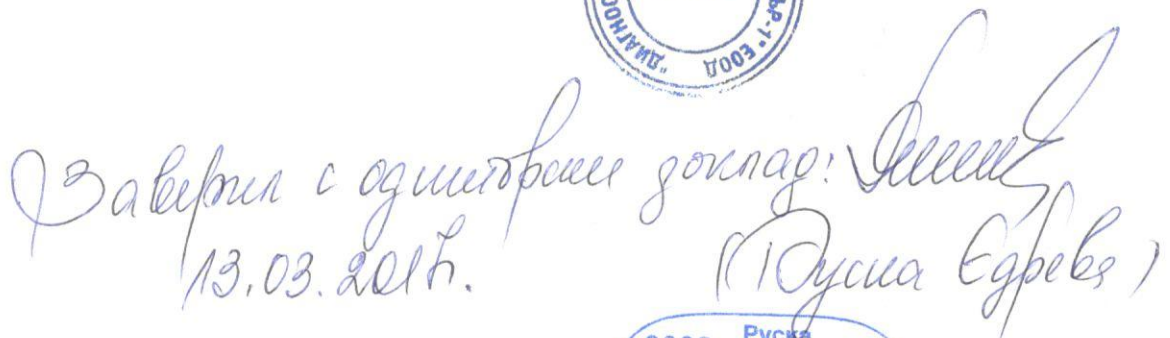 "ДИАГНОС ЪР-1" ЕООД
Заверил с одиторски доклад:
13.03.2017г.
(Руска Едрева)
Руска